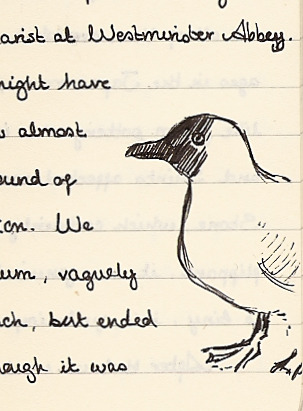 arist at Westminster Abbey.
night have
almost
ound of
ion. We
um, vaguely
ch, but ended
ough it was